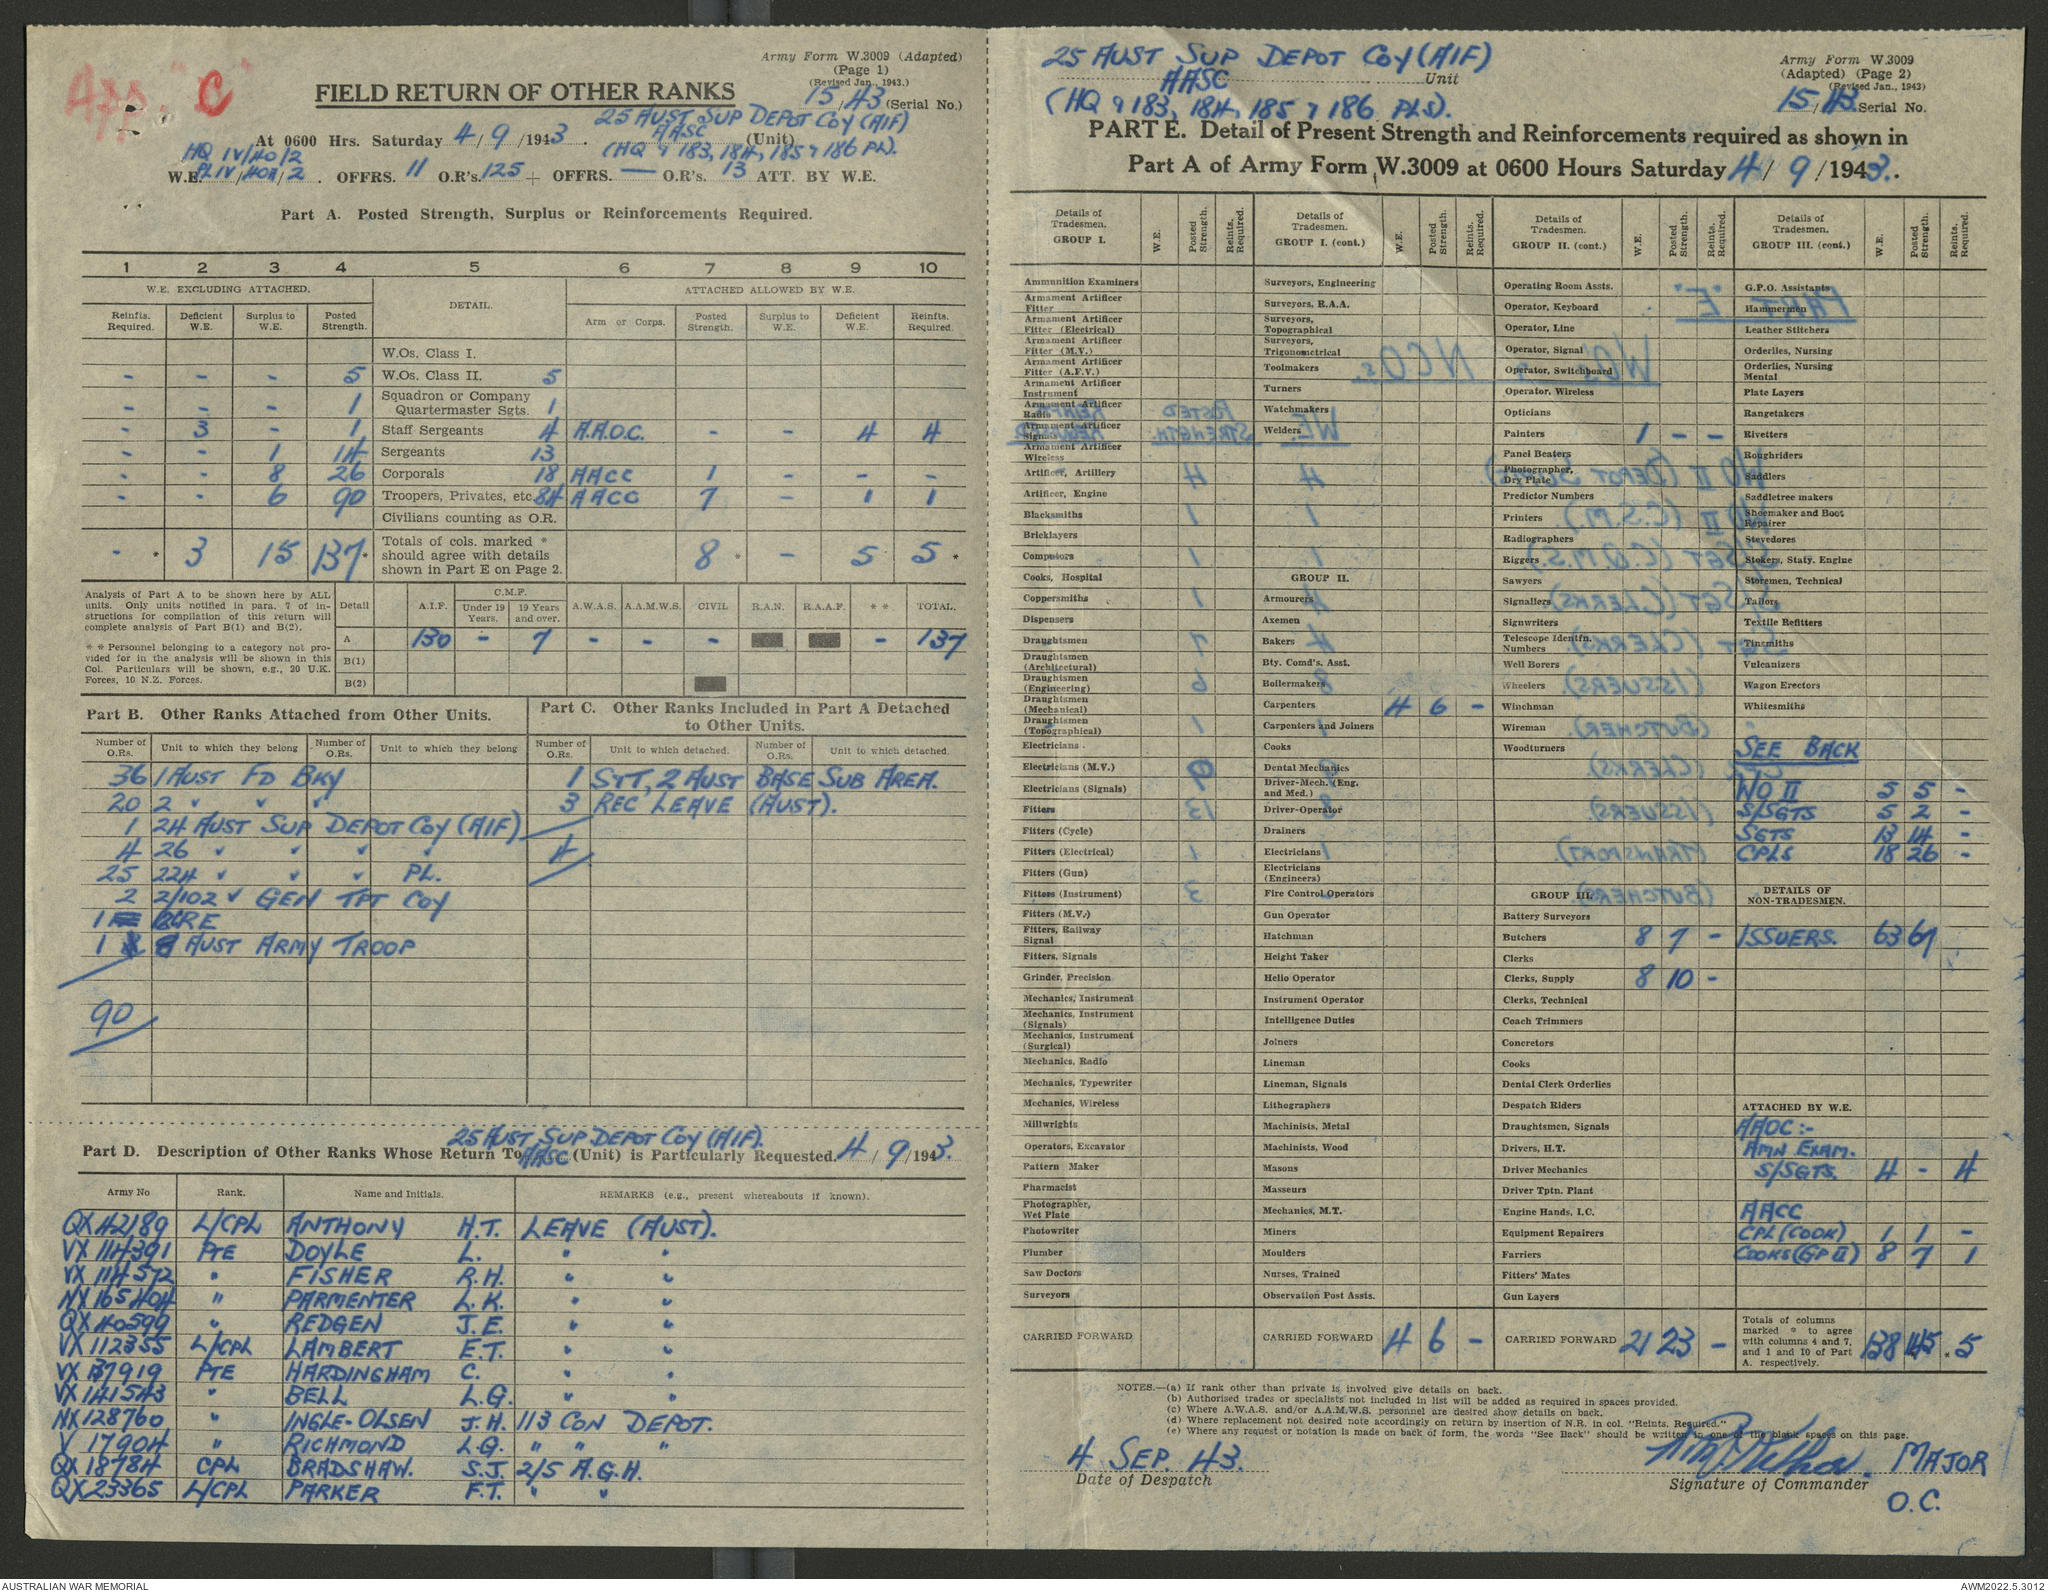 App. "C"
Army Form W.3009 (Adapted)
(Page 1)
(Revised Jan., 1943.)
FIELD RETURN OF OTHER RANKS
15/43 (Serial No.)
25 AUST SUP DEPOT COY (AIF)
AASC
At 0600 Hrs. Saturday 4/9/1943. (Unit)
(HQ & 183, 184, 185 & 186 PL).
HQ IV/40/2
W.E. PL IV/40A/2. OFFRS. 11 O.R's. 125 + OFFRS. — O.R's. 13 ATT. BY W.E.
Part A. Posted Strength, Surplus or Reinforcements Required.
1 2 3 4 5 6 7 8 9 10
W.E. EXCLUDING ATTACHED. DETAIL. ATTACHED ALLOWED BY W.E.
Reinfts. Required. Deficient W.E. Surplus to W.E. Posted Strength. Arm or Corps. Posted Strength. Surplus to W.E. Deficient W.E. Reinfts. Required.
W.Os. Class I.
- - - 5 W.Os. Class II. 5
- - - 1 Squadron or Company Quartermaster Sgts. 1
- 3 - 1 Staff Sergeants 4 A.A.O.C. - - 4 4
- - 1 14 Sergeants 13
- - 8 26 Corporals 18 AACC 1 - - -
- - 6 90 Troopers, Privates, etc. 84 AACC 7 - 1 1
Civilians counting as O.R.
- * 3 15 137 * Totals of cols. marked * should agree with details shown in Part E on Page 2. 8 * - 5 5 *
Analysis of Part A to be shown here by ALL units. Only units notified in para. 7 of instructions for compilation of this return will complete analysis of Part B(1) and B(2).
* * Personnel belonging to a category not provided for in the analysis will be shown in this Col. Particulars will be shown, e.g., 20 U.K. Forces, 10 N.Z. Forces.
Detail A.I.F. C.M.F. Under 19 Years. 19 Years and over. A.W.A.S. A.A.M.W.S. CIVIL R.A.N. R.A.A.F. * * TOTAL.
A 130 - 7 - - - - 137
B(1)
B(2)
Part B. Other Ranks Attached from Other Units.
Part C. Other Ranks Included in Part A Detached to Other Units.
Number of O.Rs. Unit to which they belong Number of O.Rs. Unit to which they belong Number of O.Rs. Unit to which detached. Number of O.Rs. Unit to which detached.
36 1 AUST FD BKY 1 STT, 2 AUST BASE SUB AREA.
20 2 " " " 3 REC LEAVE (AUST).
1 24 AUST SUP DEPOT COY (AIF)
4 26 " " " " 4
25 224 " " " PL.
2 2/102 " GEN TPT COY
1 RE
1 8 AUST ARMY TROOP
90
25 AUST SUP DEPOT COY (AIF).
Part D. Description of Other Ranks Whose Return To AASC (Unit) is Particularly Requested. 4/9/1943.
Army No Rank. Name and Initials. REMARKS (e.g., present whereabouts if known).
QX42189 L/CPL ANTHONY H.T. LEAVE (AUST).
VX114391 PTE DOYLE L. " "
VX114572 " FISHER R.H. " "
NX165404 " PARMENTER L.K. " "
QX40599 " REDGEN J.E. " "
VX112355 L/CPL LAMBERT E.T. " "
VX137919 PTE HARDINGHAM C. " "
VX141543 " BELL L.G. " "
NX128760 " INGLE-OLSEN J.H. 113 CON DEPOT.
V 17904 " RICHMOND L.G. " " "
QX18784 CPL BRADSHAW. S.J. 2/5 A.G.H.
QX23365 L/CPL PARKER F.T. " "
25 AUST SUP DEPOT COY (AIF)
AASC Unit
(HQ & 183, 184, 185 & 186 PLS).
Army Form W.3009
(Adapted) (Page 2)
(Revised Jan., 1943)
15/43 Serial No.
PART E. Detail of Present Strength and Reinforcements required as shown in
Part A of Army Form W.3009 at 0600 Hours Saturday 4/9/1943.
Details of Tradesmen. GROUP I. W.E. Posted Strength. Reints. Required.
Ammunition Examiners
Armament Artificer Fitter
Armament Artificer Fitter (Electrical)
Armament Artificer Fitter (M.V.)
Armament Artificer Fitter (A.F.V.)
Armament Artificer Instrument
Armament Artificer Radio
Armament Artificer Signals
Armament Artificer Wireless
Artificer, Artillery
Artificer, Engine
Blacksmiths
Bricklayers
Computors
Cooks, Hospital
Coppersmiths
Dispensers
Draughtsmen
Draughtsmen (Architectural)
Draughtsmen (Engineering)
Draughtsmen (Mechanical)
Draughtsmen (Topographical)
Electricians
Electricians (M.V.)
Electricians (Signals)
Fitters
Fitters (Cycle)
Fitters (Electrical)
Fitters (Gun)
Fitters (Instrument)
Fitters (M.V.)
Fitters, Railway Signal
Fitters, Signals
Grinder, Precision
Mechanics, Instrument
Mechanics, Instrument (Signals)
Mechanics, Instrument (Surgical)
Mechanics, Radio
Mechanics, Typewriter
Mechanics, Wireless
Millwrights
Operators, Excavator
Pattern Maker
Pharmacist
Photographer, Wet Plate
Photowriter
Plumber
Saw Doctors
Surveyors
CARRIED FORWARD
Details of Tradesmen. GROUP I. (cont.) W.E. Posted Strength. Reints. Required.
Surveyors, Engineering
Surveyors, R.A.A.
Surveyors, Topographical
Surveyors, Trigonometrical
Toolmakers
Turners
Watchmakers
Welders
GROUP II.
Armourers
Axemen
Bakers
Bty. Comd's. Asst.
Boilermakers
Carpenters 4 6 -
Carpenters and Joiners
Cooks
Dental Mechanics
Driver-Mech. (Eng. and Med.)
Driver-Operator
Drainers
Electricians
Electricians (Engineers)
Fire Control Operators
Gun Operator
Hatchman
Height Taker
Helio Operator
Instrument Operator
Intelligence Duties
Joiners
Lineman
Lineman, Signals
Lithographers
Machinists, Metal
Machinists, Wood
Masons
Masseurs
Mechanics, M.T.
Miners
Moulders
Nurses, Trained
Observation Post Assts.
CARRIED FORWARD 4 6 -
Details of Tradesmen. GROUP II. (cont.) W.E. Posted Strength. Reints. Required.
Operating Room Assts.
Operator, Keyboard
Operator, Line
Operator, Signal
Operator, Switchboard
Operator, Wireless
Opticians
Painters 1 - -
Panel Beaters
Photographer, Dry Plate
Predictor Numbers
Printers
Radiographers
Riggers
Sawyers
Signallers
Signwriters
Telescope Identfn. Numbers
Well Borers
Wheelers
Winchman
Wireman
Woodturners
GROUP III.
Battery Surveyors
Butchers 8 7 -
Clerks
Clerks, Supply 8 10 -
Clerks, Technical
Coach Trimmers
Concretors
Cooks
Dental Clerk Orderlies
Despatch Riders
Draughtsmen, Signals
Drivers, H.T.
Driver Mechanics
Driver Tptn. Plant
Engine Hands, I.C.
Equipment Repairers
Farriers
Fitters' Mates
Gun Layers
CARRIED FORWARD 21 23 -
Details of Tradesmen. GROUP III. (cont.) W.E. Posted Strength. Reints. Required.
G.P.O. Assistants
Hammermen
Leather Stitchers
Orderlies, Nursing
Orderlies, Nursing Mental
Plate Layers
Rangetakers
Rivetters
Roughriders
Saddlers
Saddletree makers
Shoemaker and Boot Repairer
Stevedores
Stokers, Staty. Engine
Storemen, Technical
Tailors
Textile Refitters
Tinsmiths
Vulcanizers
Wagon Erectors
Whitesmiths
SEE BACK
WO II 5 5 -
S/SGTS 5 2 -
SGTS 13 14 -
CPLS 18 26 -
DETAILS OF NON-TRADESMEN.
ISSUERS. 63 67
ATTACHED BY W.E.
AAOC :-
AMN EXAM.
S/SGTS. 4 - 4
AACC
CPL (COOK) 1 1 -
COOKS (GP II) 8 7 1
Totals of columns marked * to agree with columns 4 and 7, and 1 and 10 of Part A. respectively. 138 145 * 5
NOTES.—(a) If rank other than private is involved give details on back.
(b) Authorised trades or specialists not included in list will be added as required in spaces provided.
(c) Where A.W.A.S. and/or A.A.M.W.S. personnel are desired show details on back.
(d) Where replacement not desired note accordingly on return by insertion of N.R. in col. "Reints. Required."
(e) Where any request or notation is made on back of form, the words "See Back" should be written in one of the blank spaces on this page.
4 SEP. 43.
Date of Despatch
MAJOR
Signature of Commander
O.C.
AUSTRALIAN WAR MEMORIAL
AWM2022.5.3012